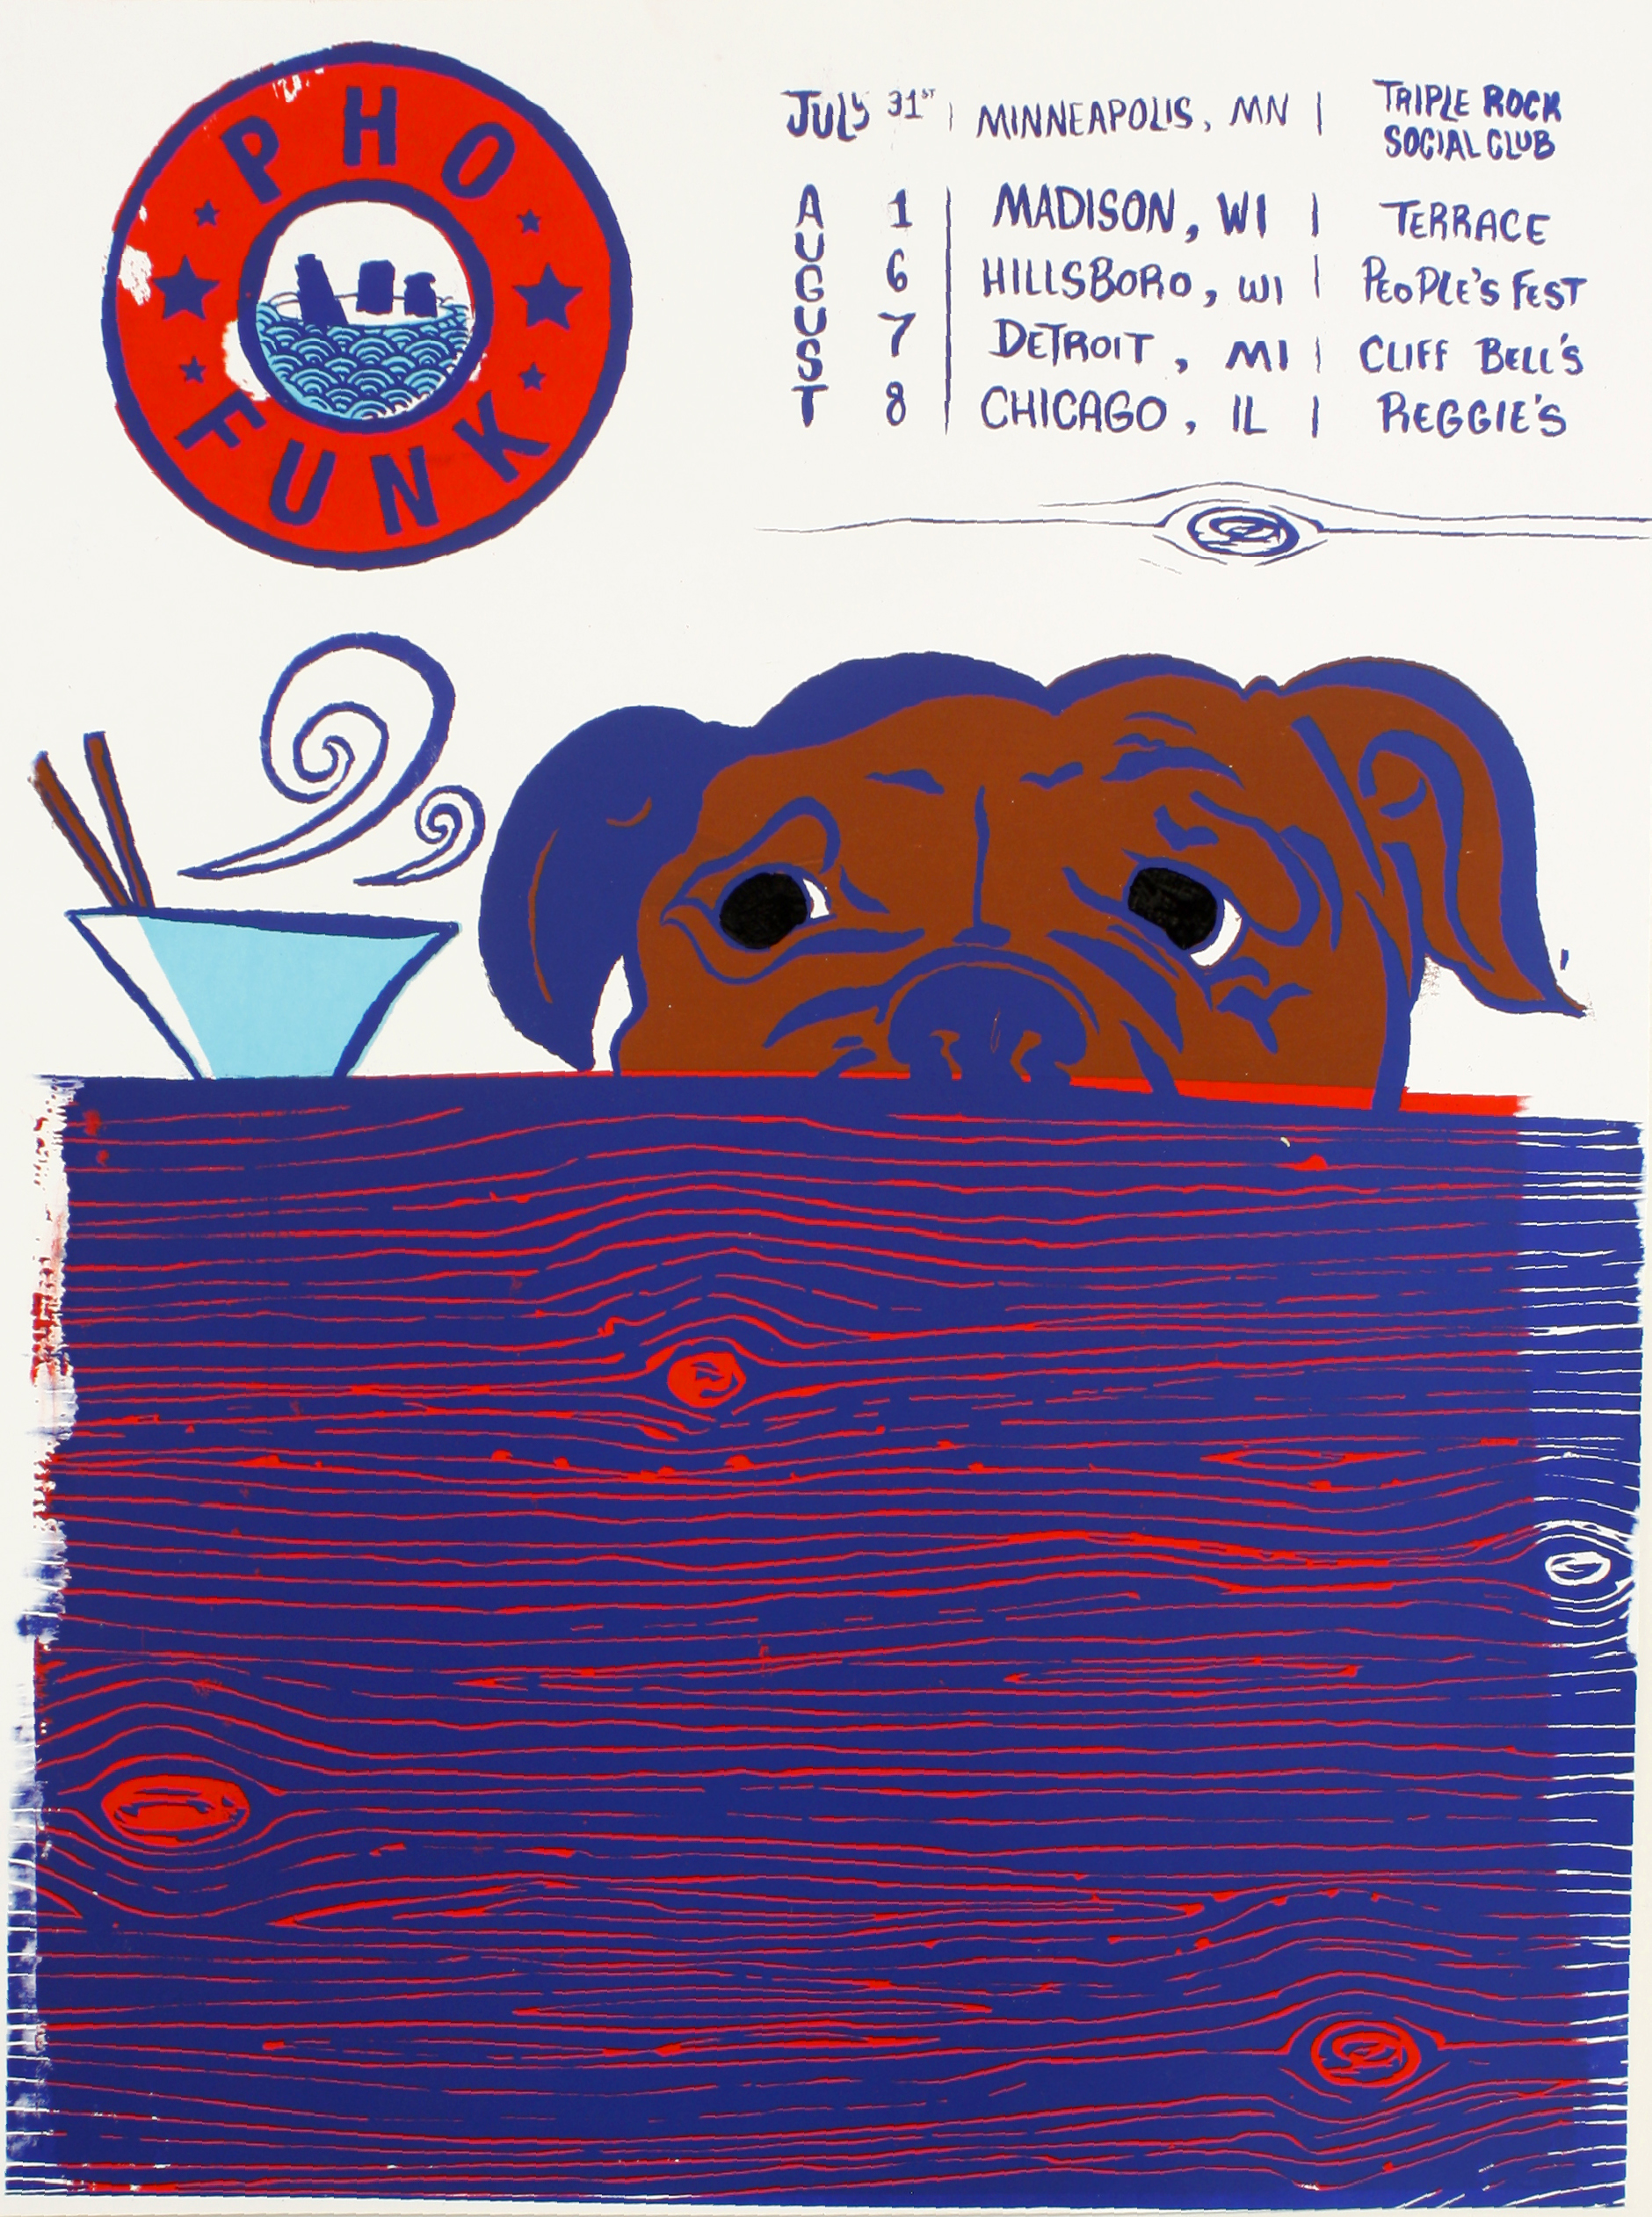 PHO
FUNK
JULY 31ST | MINNEAPOLIS, MN | TRIPLE ROCK
SOCIAL CLUB
AUGUST
1 | MADISON, WI | TERRACE
6 | HILLSBORO, WI | PEOPLE'S FEST
7 | DETROIT, MI | CLIFF BELL'S
8 | CHICAGO, IL | REGGIE'S